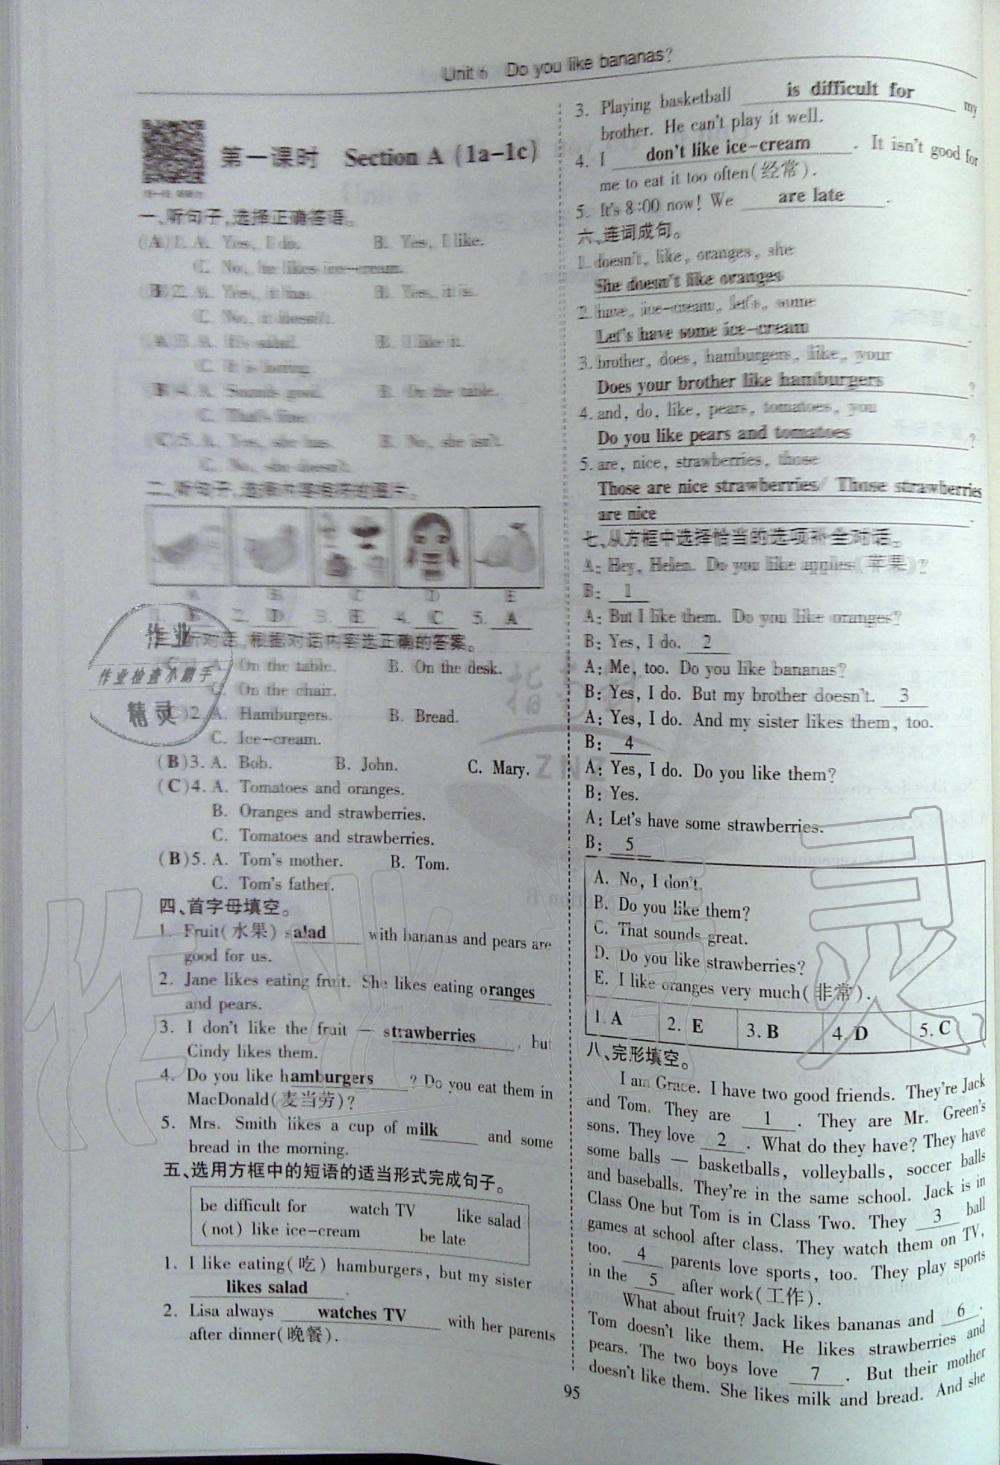 Unit 6 Do you like bananas?
第一课时 Section A (1a-1c)
一、听句子,选择正确答语。
(A)1. A. Yes, I do. B. Yes, I like.
C. No, he likes ice-cream.
(B)2. A. Yes, it has. B. Yes, it is.
C. No, it doesn't.
(A)3. A. It's salad. B. I like it.
C. It is boring.
(B)4. A. Sounds good. B. On the table.
C. That's fine.
(C)5. A. Yes, she has. B. No, she isn't.
C. No, she doesn't.
二、听句子,选择内容相符的图片。
A B C D E
1. B 2. D 3. E 4. C 5. A
听对话,根据对话内容选正确的答案。
A. On the table. B. On the desk.
C. On the chair.
C)2. A. Hamburgers. B. Bread.
C. Ice-cream.
(B)3. A. Bob. B. John. C. Mary.
(C)4. A. Tomatoes and oranges.
B. Oranges and strawberries.
C. Tomatoes and strawberries.
(B)5. A. Tom's mother. B. Tom.
C. Tom's father.
四、首字母填空。
1. Fruit(水果) salad with bananas and pears are
good for us.
2. Jane likes eating fruit. She likes eating oranges
and pears.
3. I don't like the fruit — strawberries, but
Cindy likes them.
4. Do you like hamburgers? Do you eat them in
MacDonald(麦当劳)?
5. Mrs. Smith likes a cup of milk and some
bread in the morning.
五、选用方框中的短语的适当形式完成句子。
be difficult for watch TV like salad
(not) like ice-cream be late
1. I like eating(吃) hamburgers, but my sister
likes salad.
2. Lisa always watches TV with her parents
after dinner(晚餐).
3. Playing basketball is difficult for my
brother. He can't play it well.
4. I don't like ice-cream. It isn't good for
me to eat it too often(经常).
5. It's 8:00 now! We are late.
六、连词成句。
1. doesn't, like, oranges, she
She doesn't like oranges.
2. have, ice-cream, let's, some
Let's have some ice-cream.
3. brother, does, hamburgers, like, your
Does your brother like hamburgers?
4. and, do, like, pears, tomatoes, you
Do you like pears and tomatoes?
5. are, nice, strawberries, those
Those are nice strawberries/ Those strawberries
are nice.
七、从方框中选择恰当的选项补全对话。
A: Hey, Helen. Do you like apples(苹果)?
B: 1
A: But I like them. Do you like oranges?
B: Yes, I do. 2
A: Me, too. Do you like bananas?
B: Yes, I do. But my brother doesn't. 3
A: Yes, I do. And my sister likes them, too.
B: 4
A: Yes, I do. Do you like them?
B: Yes.
A: Let's have some strawberries.
B: 5
A. No, I don't.
B. Do you like them?
C. That sounds great.
D. Do you like strawberries?
E. I like oranges very much(非常).
1. A 2. E 3. B 4. D 5. C
八、完形填空。
I am Grace. I have two good friends. They're Jack
and Tom. They are 1. They are Mr. Green's
sons. They love 2. What do they have? They have
some balls — basketballs, volleyballs, soccer balls
and baseballs. They're in the same school. Jack is in
Class One but Tom is in Class Two. They 3 ball
games at school after class. They watch them on TV,
too. 4 parents love sports, too. They play sports
in the 5 after work(工作).
What about fruit? Jack likes bananas and 6.
Tom doesn't like them. He likes strawberries and
pears. The two boys love 7. But their mother
doesn't like them. She likes milk and bread. And she
95
作业
作业检查小助手
精灵
ZNZ
作业精灵